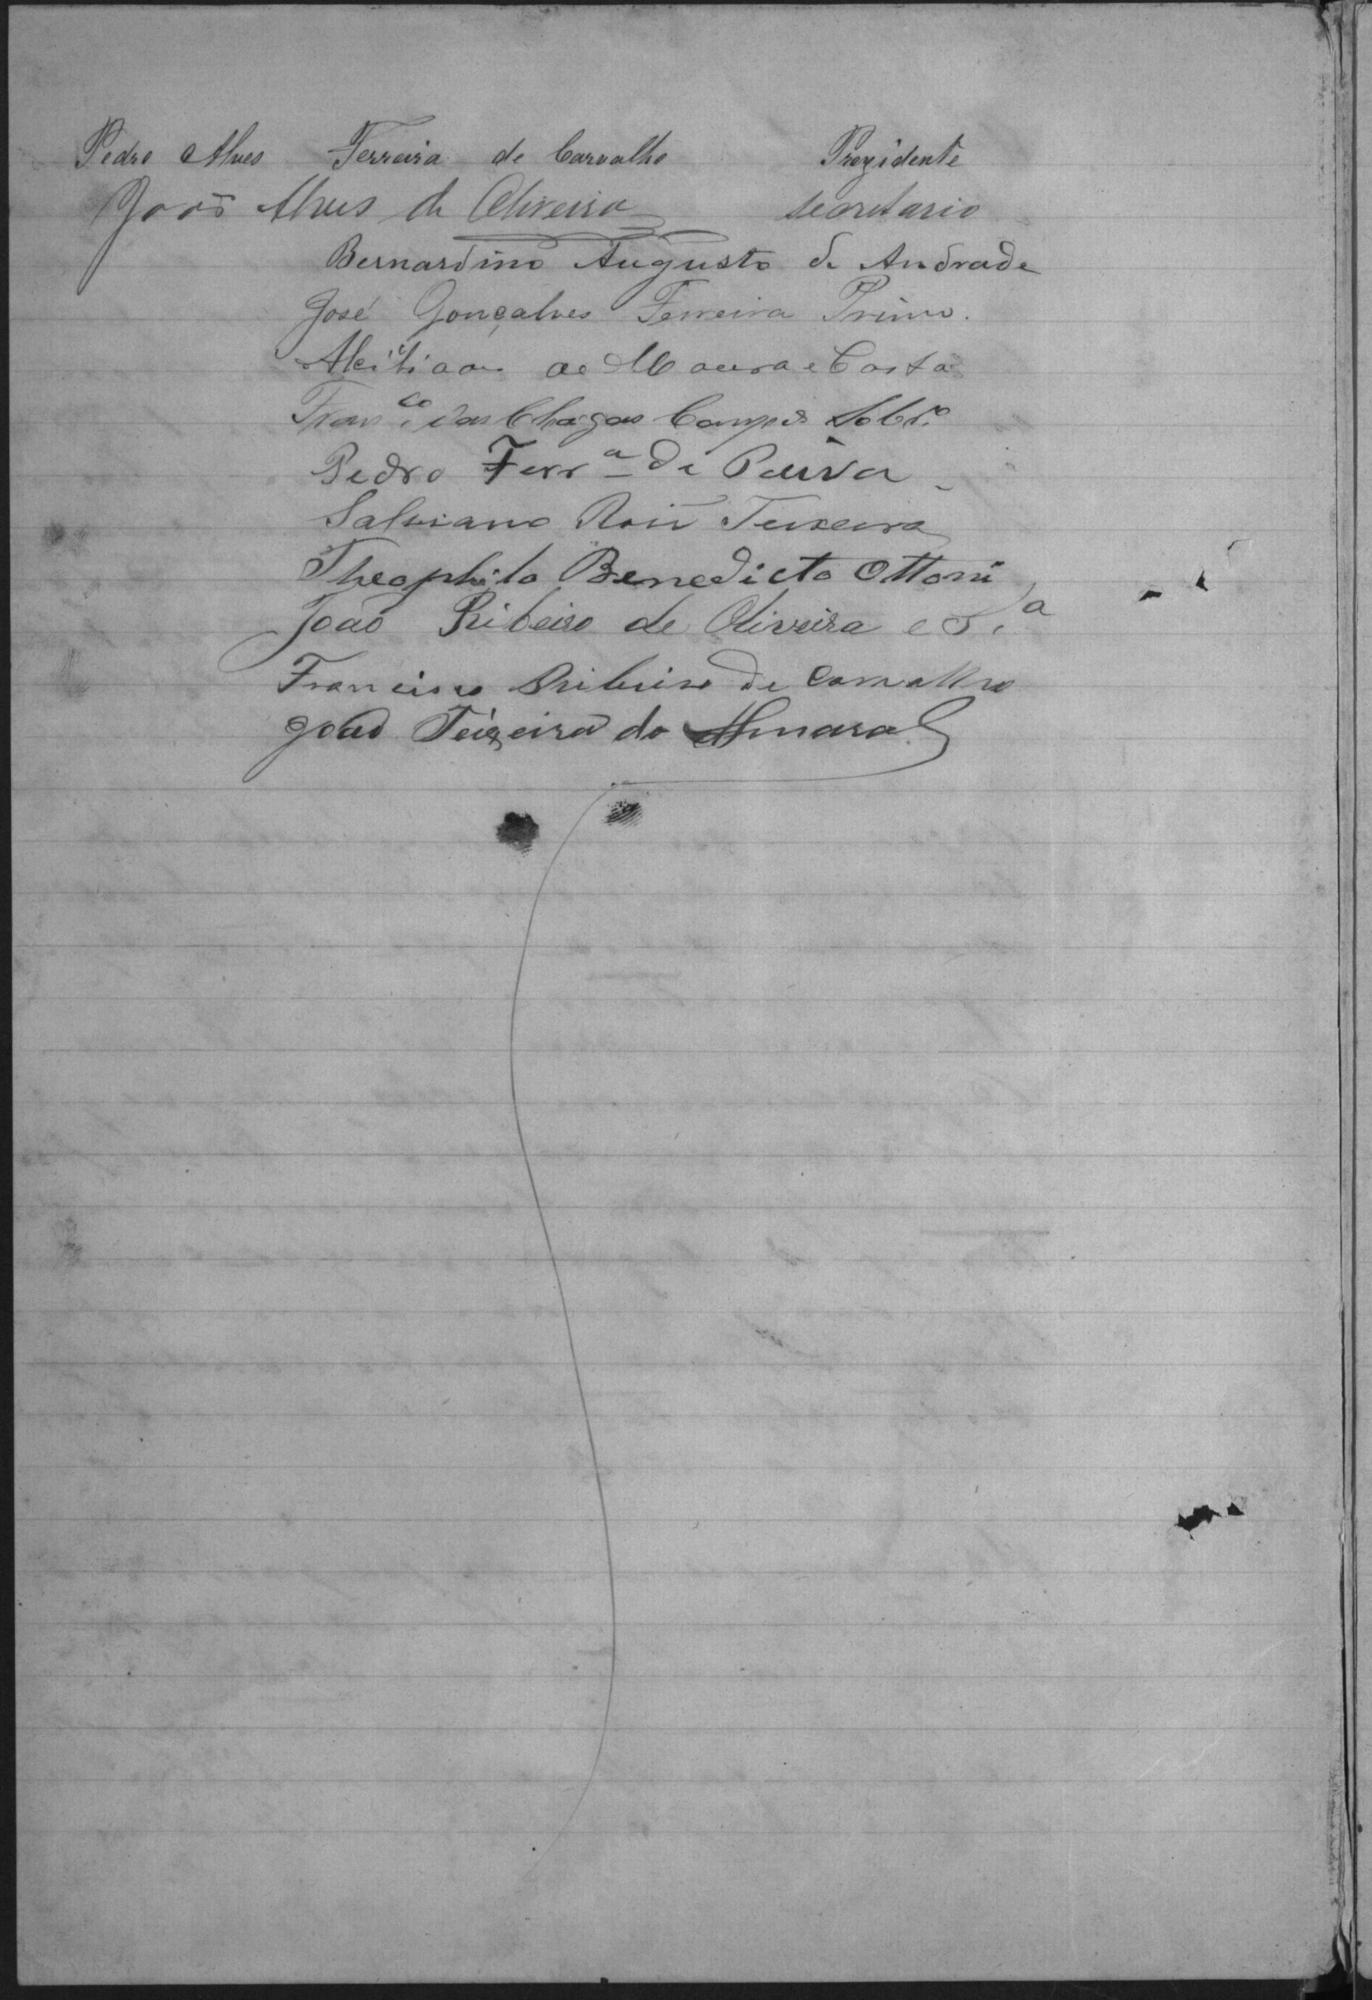 Pedro Alves Ferreira de Carvalho Prezidente
João Alves de Oliveira secretario
Bernardino Augusto de Andrade
José Gonçalves Ferreira Primo.
de Moura e Costa
Fran.co das Chagas Campos Sobr.o
Pedro Ferr.a de Paiva
Salviano Teixeira
Theophilo Benedicto Ottoni
João Ribeiro de Oliveira e S.a
Francisco Ribeiro de Carvalho
João Teixeira do Amaral